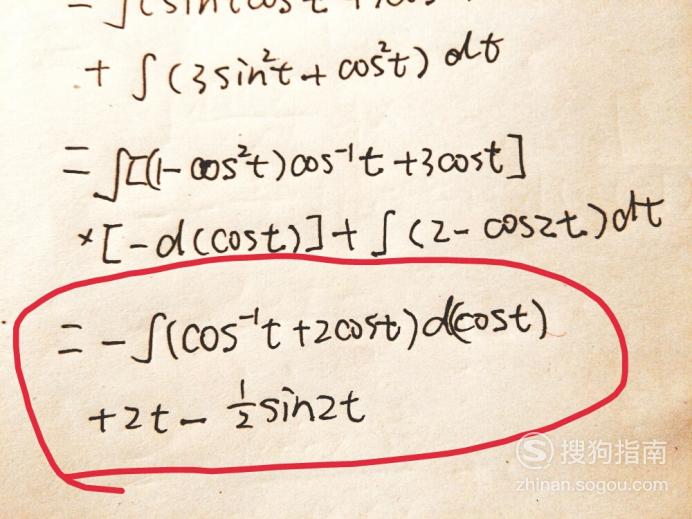 + ∫(3sin²t + cos²t) dt
= ∫[(1-cos²t)cos⁻¹t + 3cost]
×[-d(cost)] + ∫(2-cos2t)dt
= -∫(cos⁻¹t + 2cost)d(cost)
+2t - ½sin2t
搜狗指南
zhinan.sogou.com